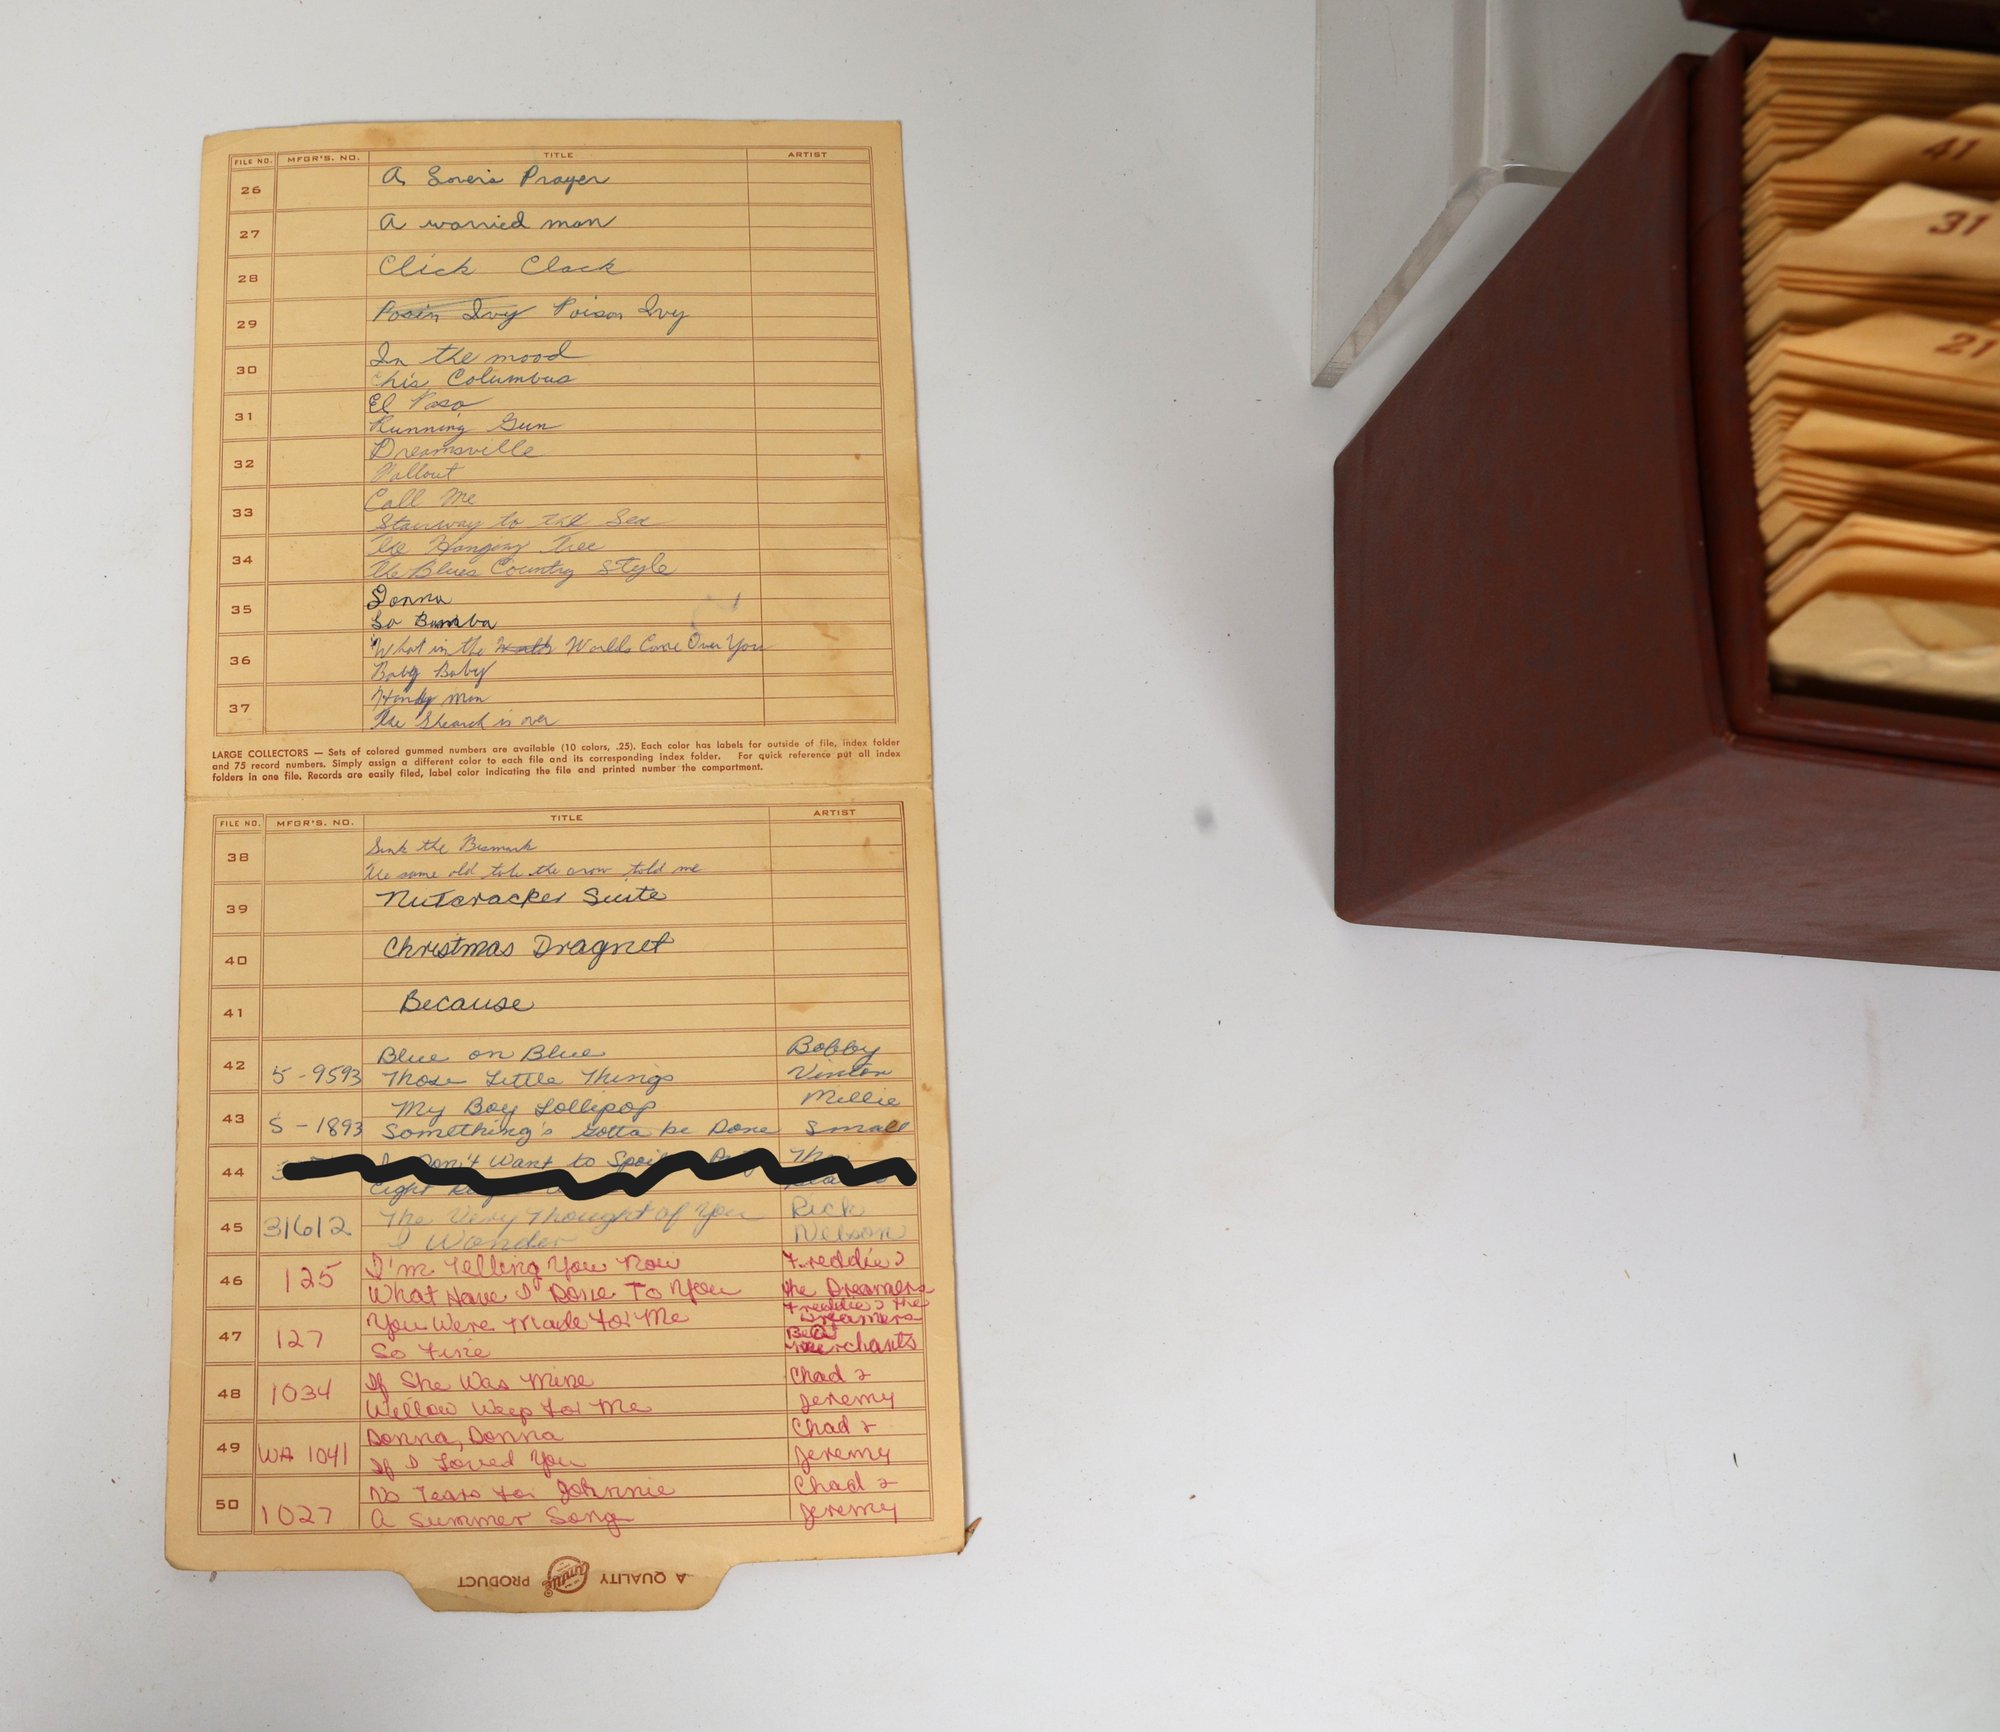 FILE NO. MFGR'S. NO. TITLE ARTIST
26 A Lover's Prayer
27 A worried man
28 Click Clack
29 Posin Ivy Poison Ivy
30 In the mood
Chis Columbus
31 El Paso
Running Gun
32 Dreamsville
Fallout
33 Call Me
Stairway to the Sea
34 The Hanging Tree
The Blues Country Style
35 Donna
La Bamba
36 What in the World's Come Over You
Baby Baby
37 Handy Man
The Shearch is over
LARGE COLLECTORS — Sets of colored gummed numbers are available (10 colors, .25). Each color has labels for outside of file, index folder
and 75 record numbers. Simply assign a different color to each file and its corresponding index folder. For quick reference put all index
folders in one file. Records are easily filed, label color indicating the file and printed number the compartment.
FILE NO. MFGR'S. NO. TITLE ARTIST
38 Sink the Bismark
The same old tale the crow told me
39 Nutcracker Suite
40 Christmas Dragnet
41 Because
42 Blue on Blue Bobby
5-9593 Those Little Things Vinton
43 My Boy Lollipop Millie
S-1893 Something's Gotta be Done Small
44 Don't Want to
Eight
45 31612 The Very Thought of You Rick
I Wonder Nelson
46 125 I'm Telling You Now Freddie &
What Have I Done To You the Dreamers
47 127 You Were Made For Me Freddie & the Dreamers
So Fine Beat Merchants
48 1034 If She Was Mine Chad &
Willow Weep For Me Jeremy
49 WA 1041 Donna, Donna Chad &
If I Loved You Jeremy
50 1027 No Tears For Johnnie Chad &
A Summer Song Jeremy
A QUALITY PRODUCT
41
31
21